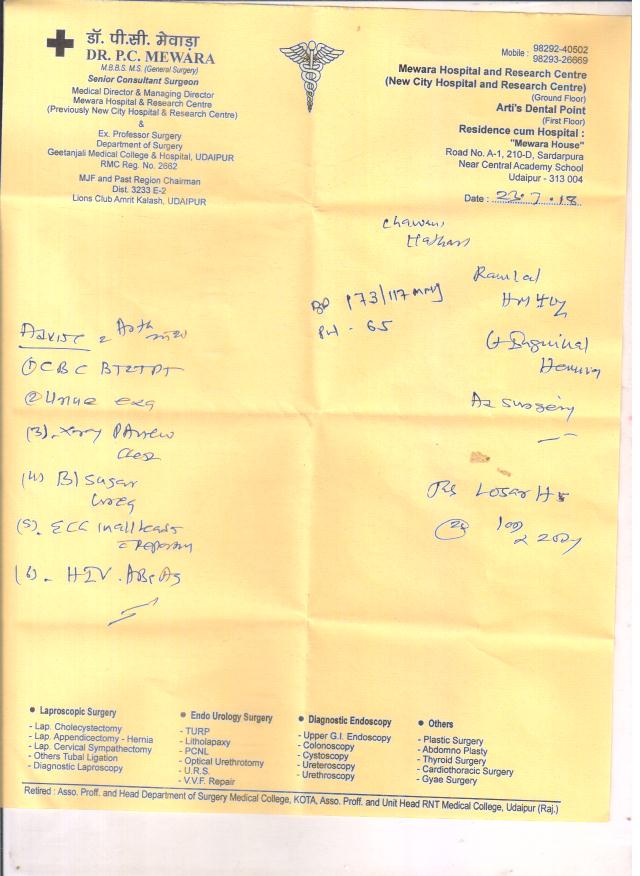 डॉ. पी.सी. मेवाड़ा
DR. P.C. MEWARA
M.B.B.S. M.S. (General Surgery)
Senior Consultant Surgeon
Medical Director & Managing Director
Mewara Hospital & Research Centre
(Previously New City Hospital & Research Centre)
&
Ex. Professor Surgery
Department of Surgery
Geetanjali Medical College & Hospital, UDAIPUR
RMC Reg. No. 2662
MJF and Past Region Chairman
Dist. 3233 E-2
Lions Club Amrit Kalash, UDAIPUR
Mobile : 98292-40502
98293-26669
Mewara Hospital and Research Centre
(New City Hospital and Research Centre)
(Ground Floor)
Arti's Dental Point
(First Floor)
Residence cum Hospital :
"Mewara House"
Road No. A-1, 210-D, Sardarpura
Near Central Academy School
Udaipur - 313 004
Date : 23.7.18
Ramlal
BP 173/117
65
Inguinal
Surgery
Advise
(1) CBC BT CT PT
(2) Urine
(3). Xray PA view
Chest
(4) Bl sugar
Urea
(5). ECG in all leads
(6). HIV.
Losar H
(20)
Laproscopic Surgery
- Lap. Cholecystectomy
- Lap. Appendicectomy - Hernia
- Lap. Cervical Sympathectomy
- Others Tubal Ligation
- Diagnostic Laproscopy
Endo Urology Surgery
- TURP
- Litholapaxy
- PCNL
- Optical Urethrotomy
- U.R.S.
- V.V.F. Repair
Diagnostic Endoscopy
- Upper G.I. Endoscopy
- Colonoscopy
- Cystoscopy
- Ureteroscopy
- Urethroscopy
Others
- Plastic Surgery
- Abdomno Plasty
- Thyroid Surgery
- Cardiothoracic Surgery
- Gyae Surgery
Retired : Asso. Proff. and Head Department of Surgery Medical College, KOTA, Asso. Proff. and Unit Head RNT Medical College, Udaipur (Raj.)